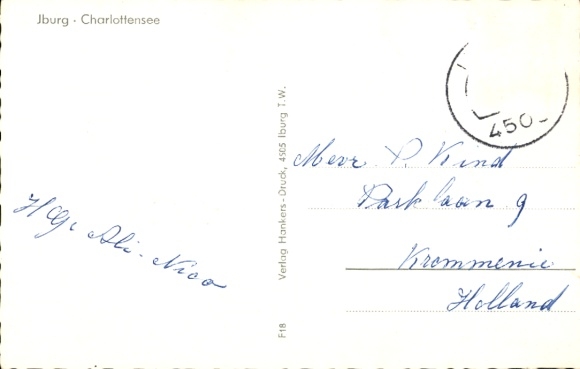 Jburg · Charlottensee
H Gr. Ali - Nico
Verlag Hankers-Druck, 4505 Iburg T.W.
F18
450
Mevr P. Kind
Parklaan 9
Krommenie
Holland